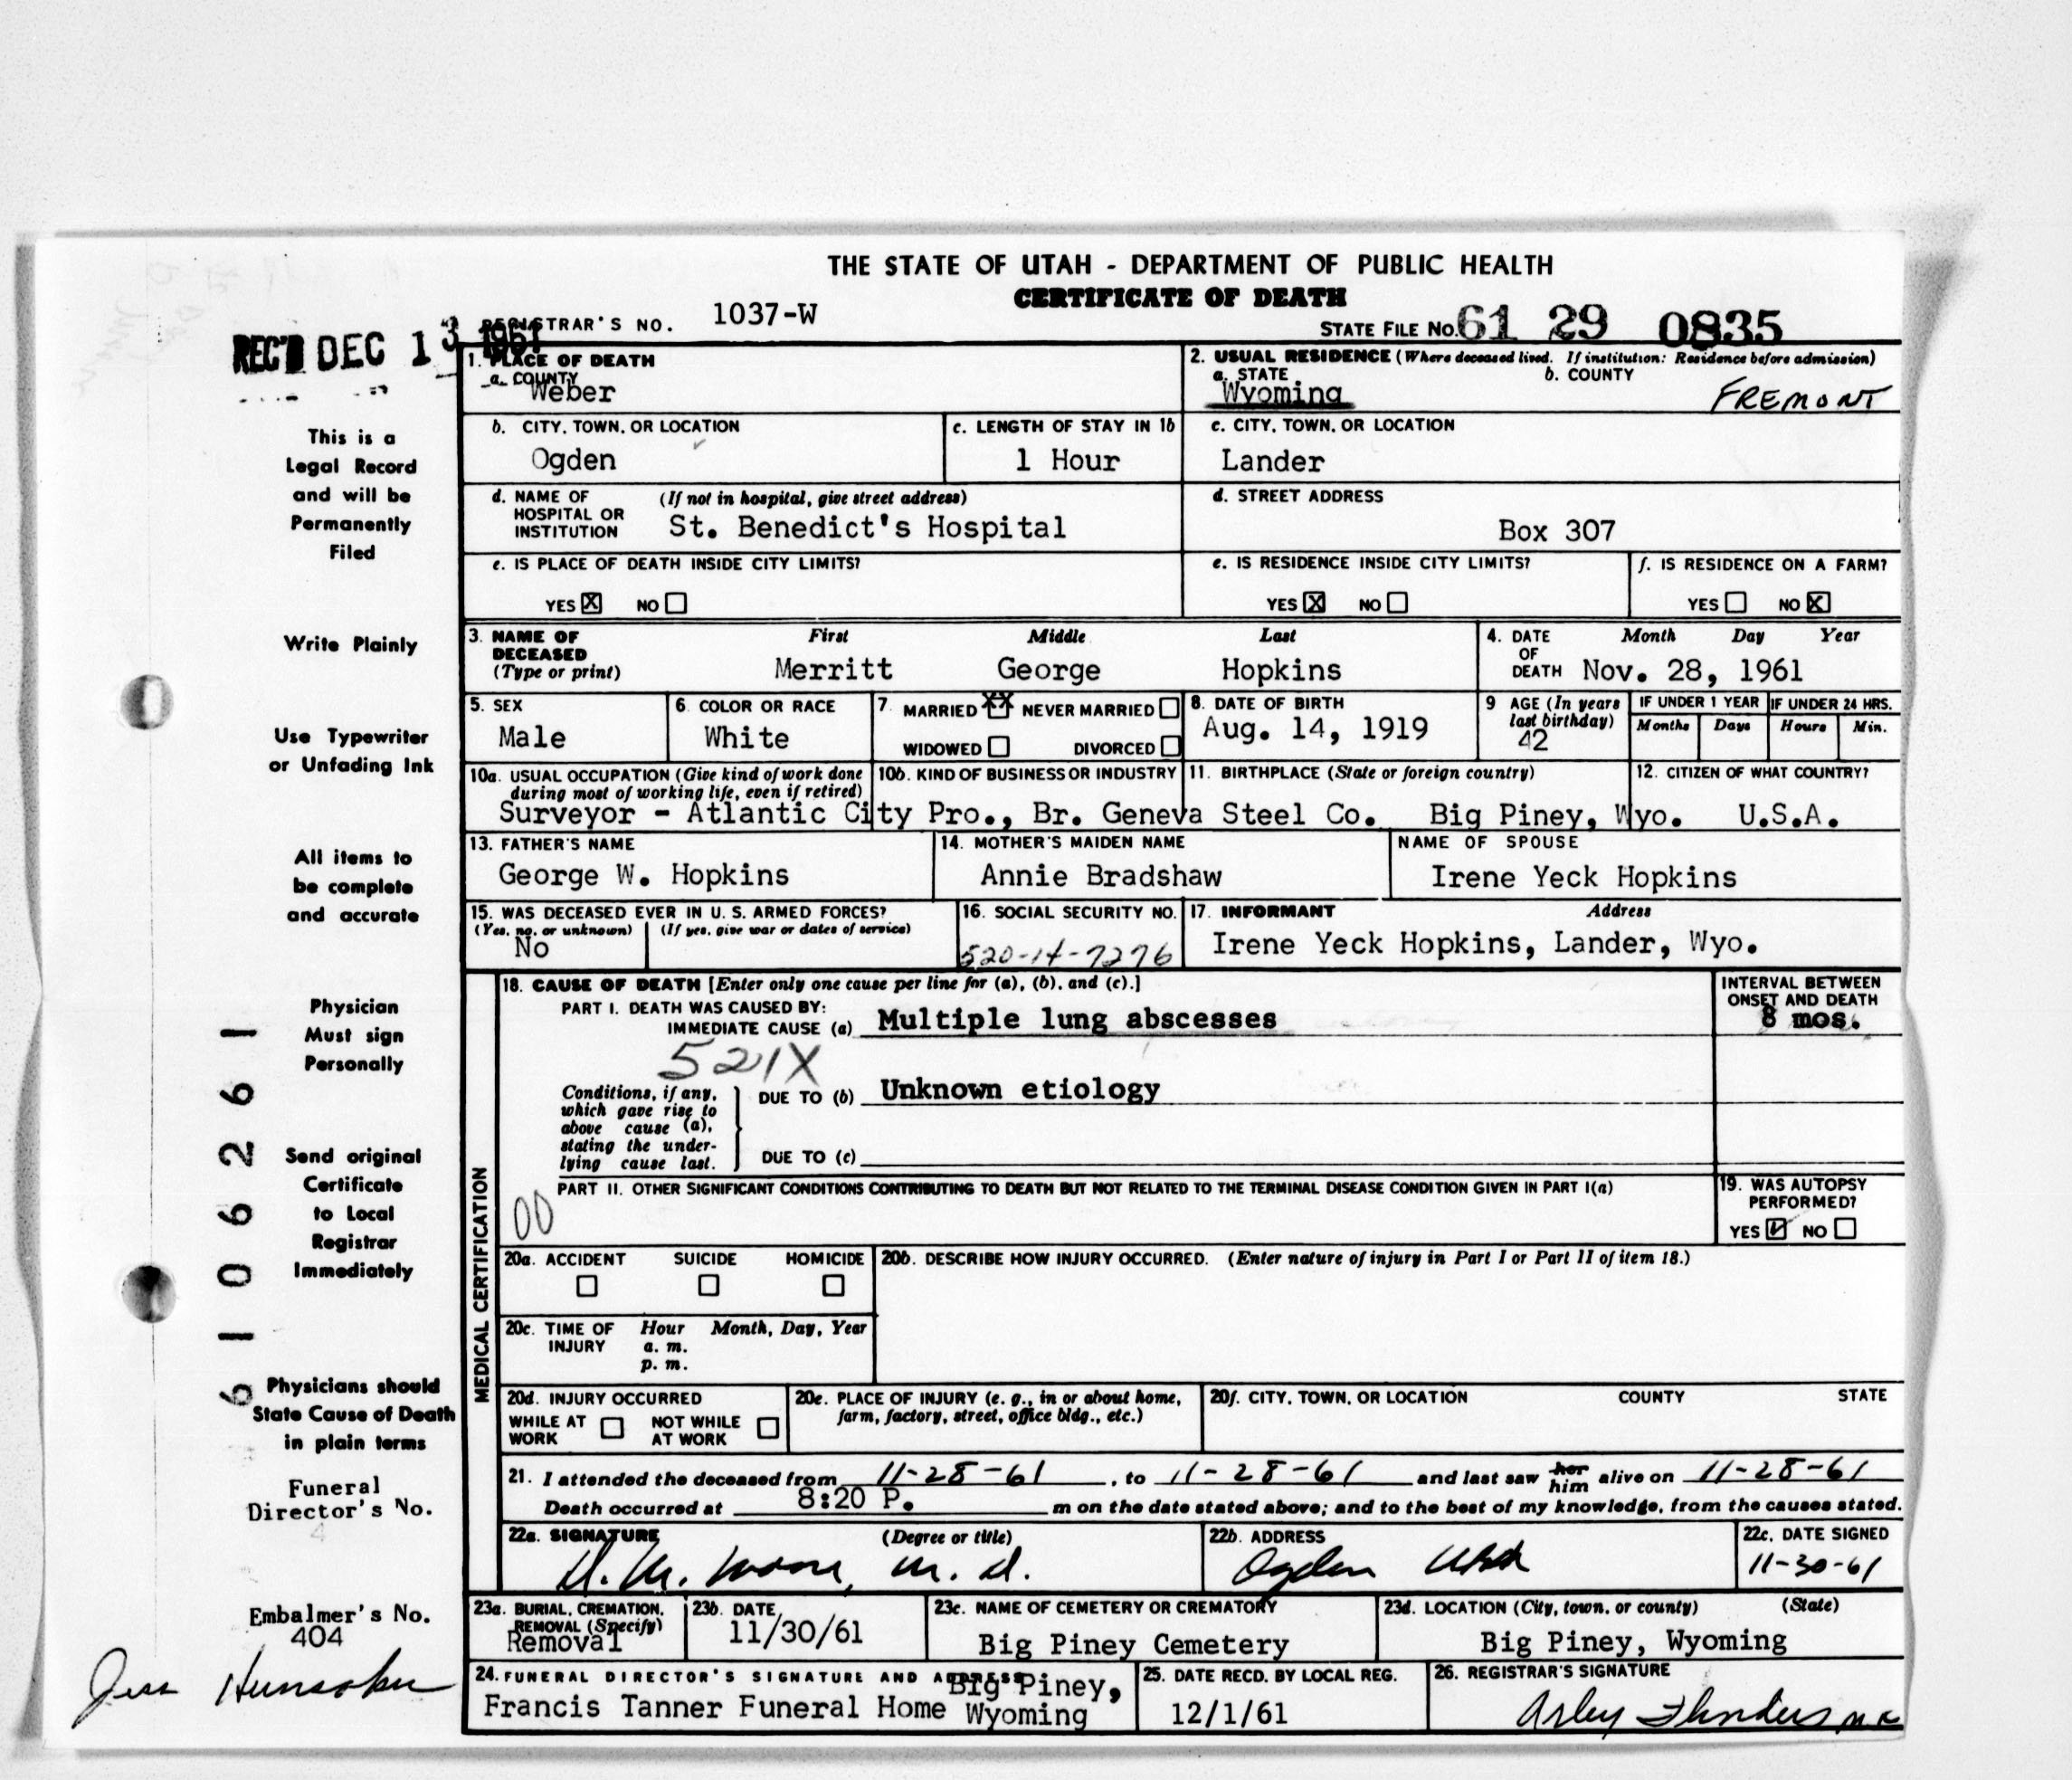 THE STATE OF UTAH - DEPARTMENT OF PUBLIC HEALTH
CERTIFICATE OF DEATH
REGISTRAR'S NO. 1037-W
STATE FILE No. 61 29 0835
REC'D DEC 13 1961
1. PLACE OF DEATH
a. COUNTY
Weber
2. USUAL RESIDENCE (Where deceased lived. If institution: Residence before admission)
a. STATE b. COUNTY
Wyoming FREMONT
b. CITY, TOWN, OR LOCATION
Ogden
c. LENGTH OF STAY IN 1b
1 Hour
c. CITY, TOWN, OR LOCATION
Lander
d. NAME OF HOSPITAL OR INSTITUTION (If not in hospital, give street address)
St. Benedict's Hospital
d. STREET ADDRESS
Box 307
e. IS PLACE OF DEATH INSIDE CITY LIMITS?
YES X NO
e. IS RESIDENCE INSIDE CITY LIMITS?
YES X NO
f. IS RESIDENCE ON A FARM?
YES NO X
3. NAME OF DECEASED (Type or print)
First Middle Last
Merritt George Hopkins
4. DATE OF DEATH Month Day Year
Nov. 28, 1961
5. SEX
Male
6. COLOR OR RACE
White
7. MARRIED XX NEVER MARRIED
WIDOWED DIVORCED
8. DATE OF BIRTH
Aug. 14, 1919
9 AGE (In years last birthday)
42
IF UNDER 1 YEAR IF UNDER 24 HRS.
Months Days Hours Min.
10a. USUAL OCCUPATION (Give kind of work done during most of working life, even if retired)
10b. KIND OF BUSINESS OR INDUSTRY
11. BIRTHPLACE (State or foreign country)
12. CITIZEN OF WHAT COUNTRY?
Surveyor - Atlantic City Pro., Br. Geneva Steel Co. Big Piney, Wyo. U.S.A.
13. FATHER'S NAME
George W. Hopkins
14. MOTHER'S MAIDEN NAME
Annie Bradshaw
NAME OF SPOUSE
Irene Yeck Hopkins
15. WAS DECEASED EVER IN U. S. ARMED FORCES?
(Yes, no, or unknown) (If yes, give war or dates of service)
No
16. SOCIAL SECURITY NO.
520-14-7276
17. INFORMANT Address
Irene Yeck Hopkins, Lander, Wyo.
18. CAUSE OF DEATH [Enter only one cause per line for (a), (b), and (c).]
PART I. DEATH WAS CAUSED BY:
IMMEDIATE CAUSE (a) Multiple lung abscesses
INTERVAL BETWEEN ONSET AND DEATH
8 mos.
521X
Conditions, if any, which gave rise to above cause (a), stating the underlying cause last.
DUE TO (b) Unknown etiology
DUE TO (c)
PART II. OTHER SIGNIFICANT CONDITIONS CONTRIBUTING TO DEATH BUT NOT RELATED TO THE TERMINAL DISEASE CONDITION GIVEN IN PART I(a)
00
19. WAS AUTOPSY PERFORMED?
YES ✓ NO
MEDICAL CERTIFICATION
20a. ACCIDENT SUICIDE HOMICIDE
20b. DESCRIBE HOW INJURY OCCURRED. (Enter nature of injury in Part I or Part II of item 18.)
20c. TIME OF INJURY Hour Month, Day, Year
a. m.
p. m.
20d. INJURY OCCURRED
WHILE AT WORK NOT WHILE AT WORK
20e. PLACE OF INJURY (e. g., in or about home, farm, factory, street, office bldg., etc.)
20f. CITY, TOWN, OR LOCATION COUNTY STATE
21. I attended the deceased from 11-28-61, to 11-28-61 and last saw her him alive on 11-28-61
Death occurred at 8:20 P. m on the date stated above; and to the best of my knowledge, from the causes stated.
22a. SIGNATURE (Degree or title)
D. M. Moore, M. D.
22b. ADDRESS
Ogden Utah
22c. DATE SIGNED
11-30-61
23a. BURIAL, CREMATION, REMOVAL (Specify)
Removal
23b. DATE
11/30/61
23c. NAME OF CEMETERY OR CREMATORY
Big Piney Cemetery
23d. LOCATION (City, town, or county) (State)
Big Piney, Wyoming
24. FUNERAL DIRECTOR'S SIGNATURE AND ADDRESS
Francis Tanner Funeral Home Big Piney, Wyoming
25. DATE RECD. BY LOCAL REG.
12/1/61
26. REGISTRAR'S SIGNATURE
Arley Flinders
This is a
Legal Record
and will be
Permanently
Filed
Write Plainly
Use Typewriter
or Unfading Ink
All items to
be complete
and accurate
Physician
Must sign
Personally
Send original
Certificate
to Local
Registrar
Immediately
Physicians should
State Cause of Death
in plain terms
Funeral
Director's No.
4
Embalmer's No.
404
Jess Hunsaker
6106261